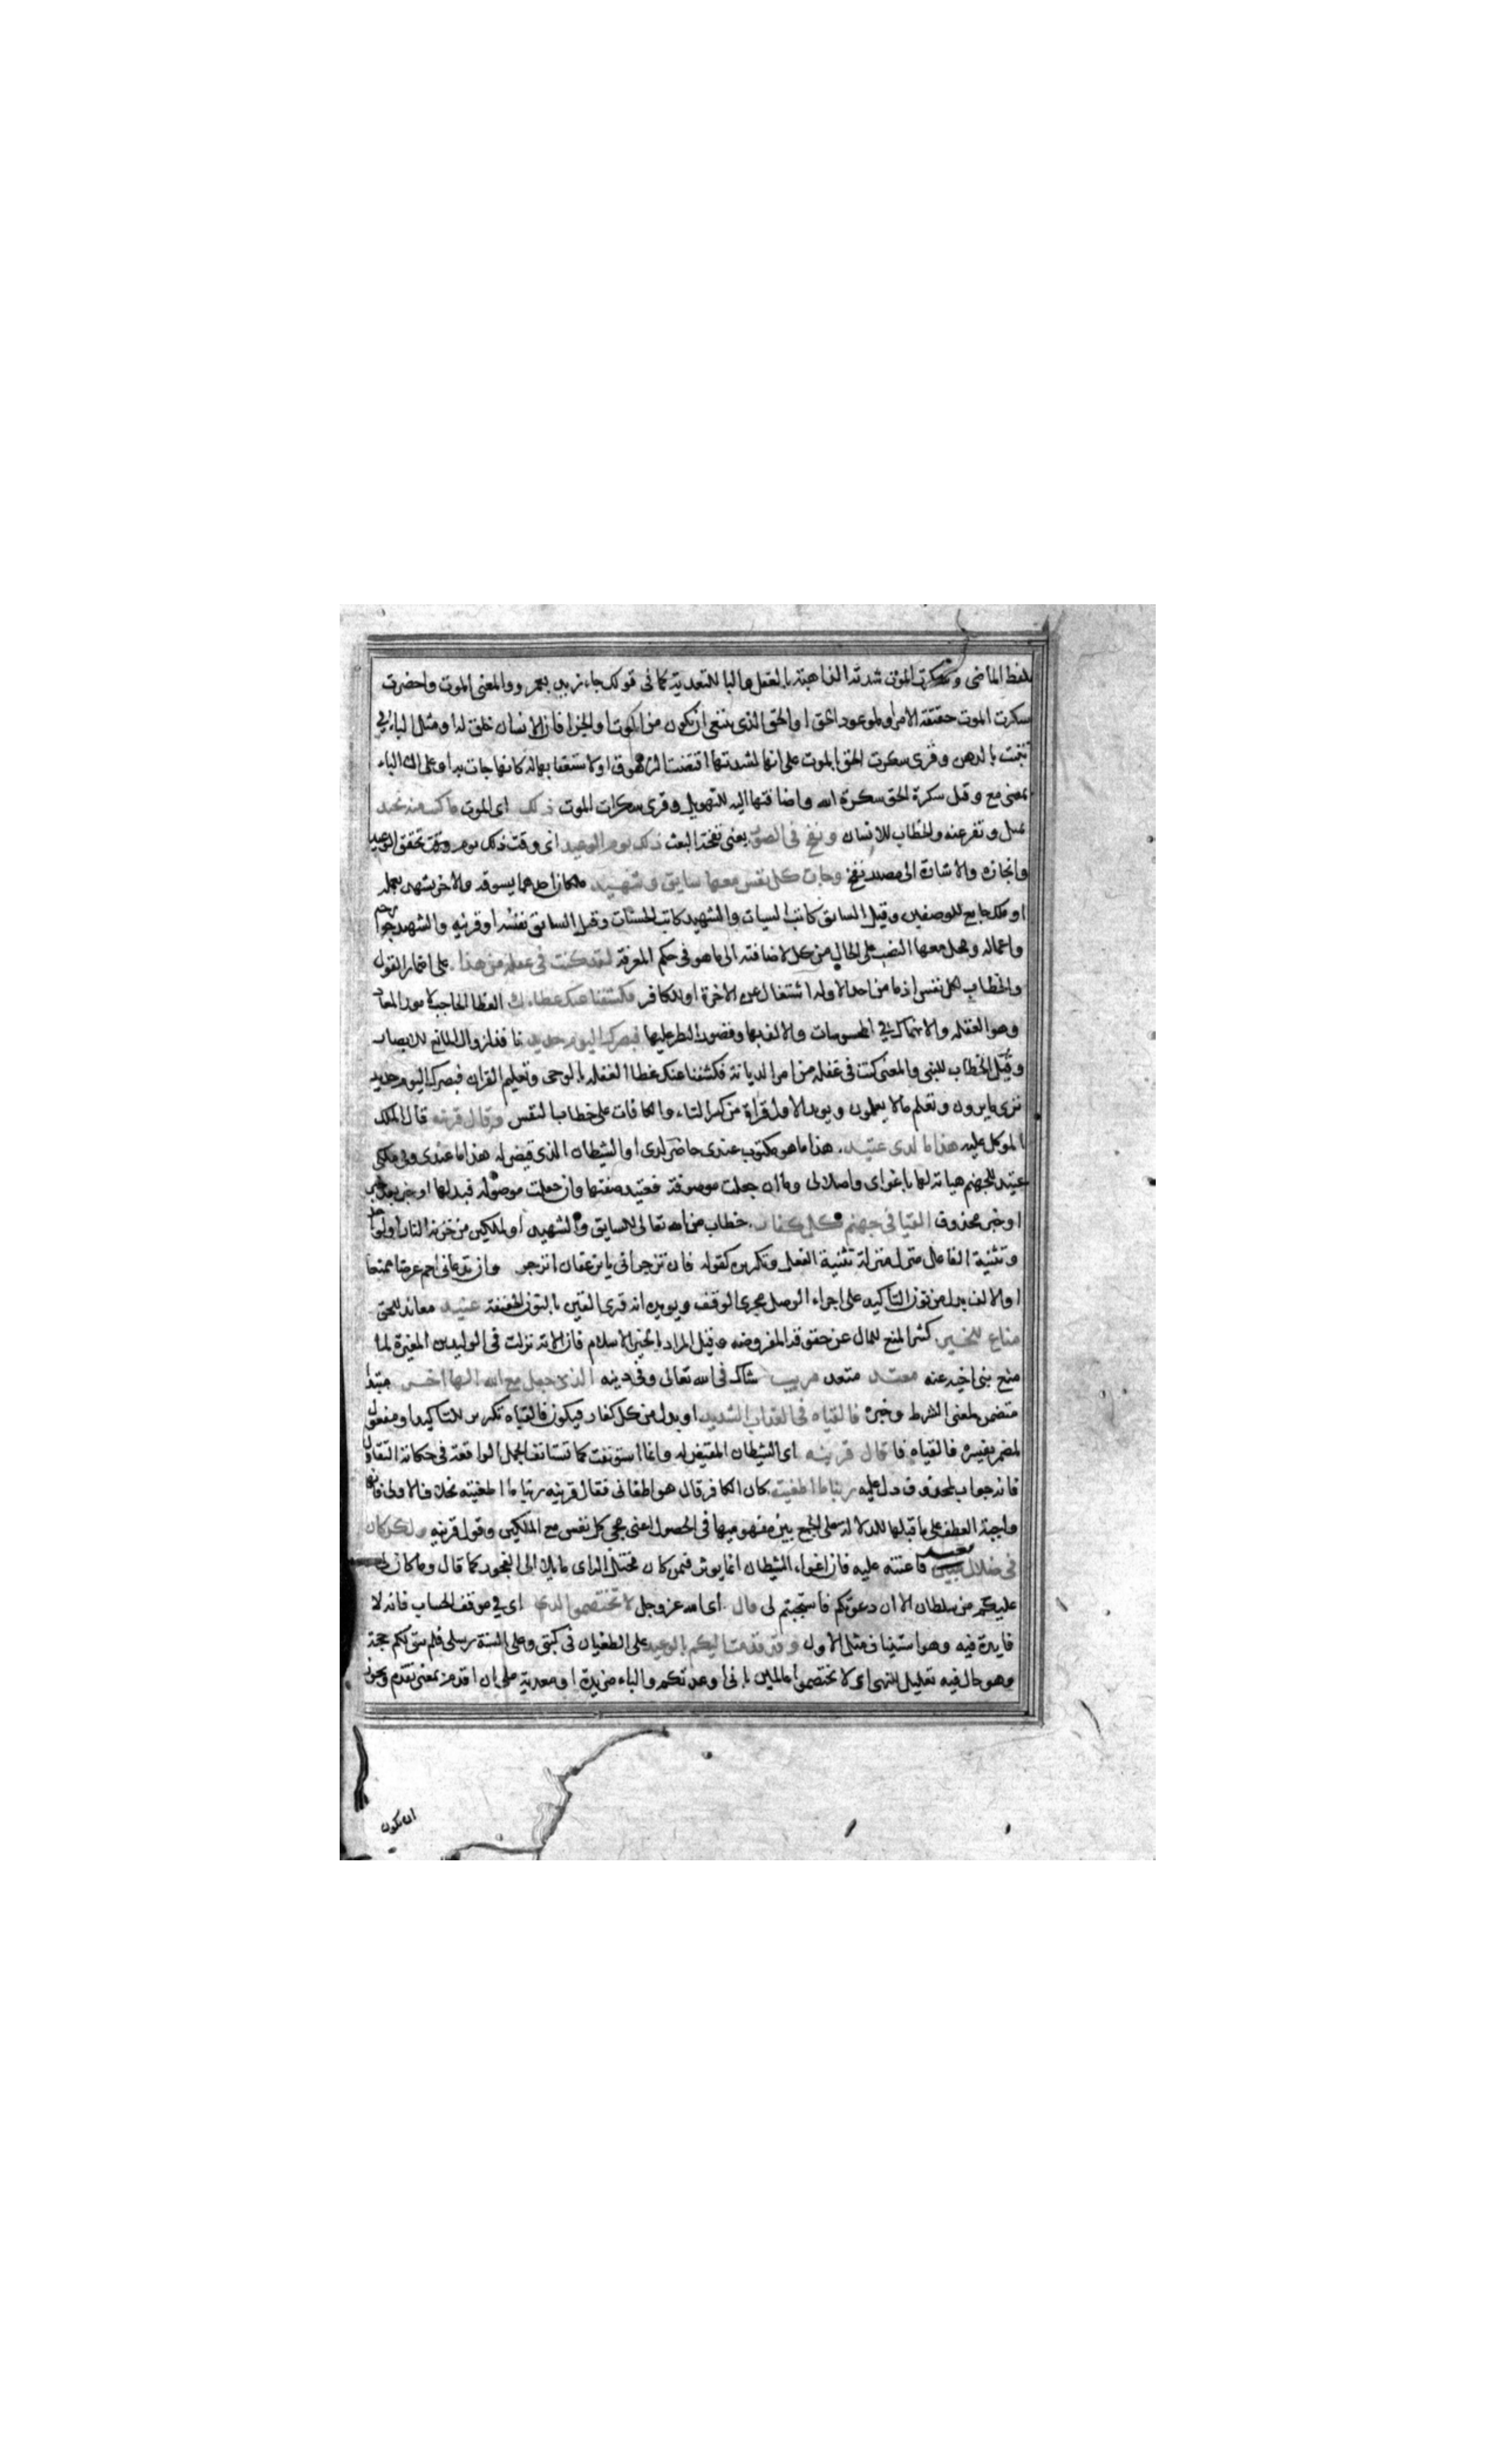 بلفظ الماضى وسكرت الموت شدته الذاهبة بالعقل والبا للتعدية كما فى قولك جاء زيد بعمرو والمعنى الموت واحضرت
سكرت الموت حقيقة الامر او الموعود الحق او الحق الذى ينبغى ان يكون من الموت او الجزا فان الانسان خلق له او مثل الباء فى
تنبت بالدهن وقرى سكرت الحق بالموت على انها لشدتها اقتضت الزهوق او لاستعقابها له كانها جات به او على ان الباء
بمعنى مع وقيل سكرة الحق سكرة الله واضافتها اليه للتهويل وقرى سكرات الموت ذلك اى الموت ما كنت منه تحيد
تميل وتفر عنه والخطاب للانسان ونفخ فى الصور يعنى نفخة البعث ذلك يوم الوعيد اى وقت ذلك يوم وقت تحقق الوعيد
وانجازه والاشارة الى مصدر نفخ وجات كل نفس معها سايق وشهيد ملكان احدهما يسوقه والاخر يشهد بعمله
او ملك جامع للوصفين وقيل السايق كاتب السيات والشهيد كاتب الحسنات وقيل السايق نفسه او قرينه والشهيد جوارحه
واعماله ومحل معها النصب على الحال من كل لاضافته الى ما هو فى حكم المعرفة لقد كنت فى غفله من هذا على اضمار القول
والخطاب لكل نفس اذ ما من احد الا وله اشتغال عن الاخرة او للكافر فكشفنا عنك غطاءك الغطا الحاجب لامور المعاد
وهو الغفله والانهماك فى المحسوسات والالف بها وقصور النظر عليها فبصرك اليوم حديد نافذ لزوال المانع للابصار
وقيل الخطاب للنبى والمعنى كنت فى غفله من امر الديانة فكشفنا عنك غطا الغفله بالوحى وتعليم القران فبصرك اليوم حديد
ترى ما يرون وتعلم مالا يعلمون ويويد الاول قراة من كسر التاء والكافات على خطاب النفس وقال قرينه قال الملك
الموكل عليه هذا ما لدى عتيد هذا ما هو مكتوب عندى حاضر لدى او الشيطان الذى قيض له هذا ما عندى وفى ملكى
عتيد لجهنم هياته لها باغواى واضلالى وما ان جعلت موصوفة فعتيد صفتها وان جعلت موصوله فبدلها او خبر بعد خبر
او خبر محذوف القيا فى جهنم كل كفار خطاب من الله تعالى للسايق والشهيد او لملكين من خزنة النار او لواحد
وتثنية الفاعل منزل منزلة تثنية الفعل وتكريره كقوله فان تزجرانى يا ابن عفان انزجر وان تدعانى احم عرضا ممنعا
او الالف بدل من نون التاكيد على اجراء الوصل مجرى الوقف ويويده انه قرى القين بالنون الخفيفة عنيد معاند للحق
مناع للخير كثير المنع للمال عن حقوقه المفروضه وقيل المراد بالخير الاسلام فان الاية نزلت فى الوليد بن المغيرة لما
منع بنى اخيه عنه معتد متعد مريب شاك فى الله تعالى وفى دينه الذى جعل مع الله الها اخر مبتدا
متضمن لمعنى الشرط وخبره فالقياه فى العذاب الشديد او بدل من كل كفار فيكون فالقياه تكرير للتاكيد او مفعول
لمضمر يفسره فالقياه فا قال قرينه اى الشيطان المقيض له وانما استونفت كما تستانف الجمل الواقعة فى حكاية التقاول
فانه جواب لمحذوف دل عليه ربنا ما اطغيته كان الكافر قال هو اطغانى فقال قرينه ربنا ما اطغيته بخلاف الاولى فانها
واجبة العطف على ما قبلها للدلالة على الجمع بين مفهوميها فى الحصول اعنى مجى كل نفس مع الملكين وقول قرينه ولكن كان
فى ضلال بعيد فاعنته عليه فان اغواء الشيطان انما يوثر فيمن كان مختل الراى مايلا الى الفجور كما قال وما كان لى
عليكم من سلطان الا ان دعوتكم فاستجبتم لى قال اى الله عز وجل لا تختصموا لدى اى فى موقف الحساب فانه لا
فايدة فيه وهو استيناف مثل الاول وقد قدمت اليكم بالوعيد على الطغيان فى كتبى وعلى السنة رسلى فلم يبق لكم حجة
وهو حال فيه تعليل للنهى اى لا تختصموا عالمين بانى اوعدتكم والباء مزيدة او معدية على ان قدم بمعنى تقدم ويجوز
ان يكون